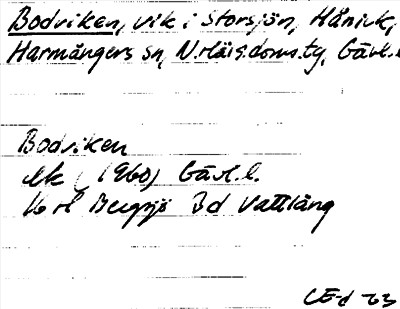 Bodviken, vik i Storsjön, Hånick,
Harmångers sn, N. Häls. doms. ty, Gävl. l.
Bodviken
Ek (1960) Gävl. l.
16 H Bergsjö Bd Vattlång
CE-d -63